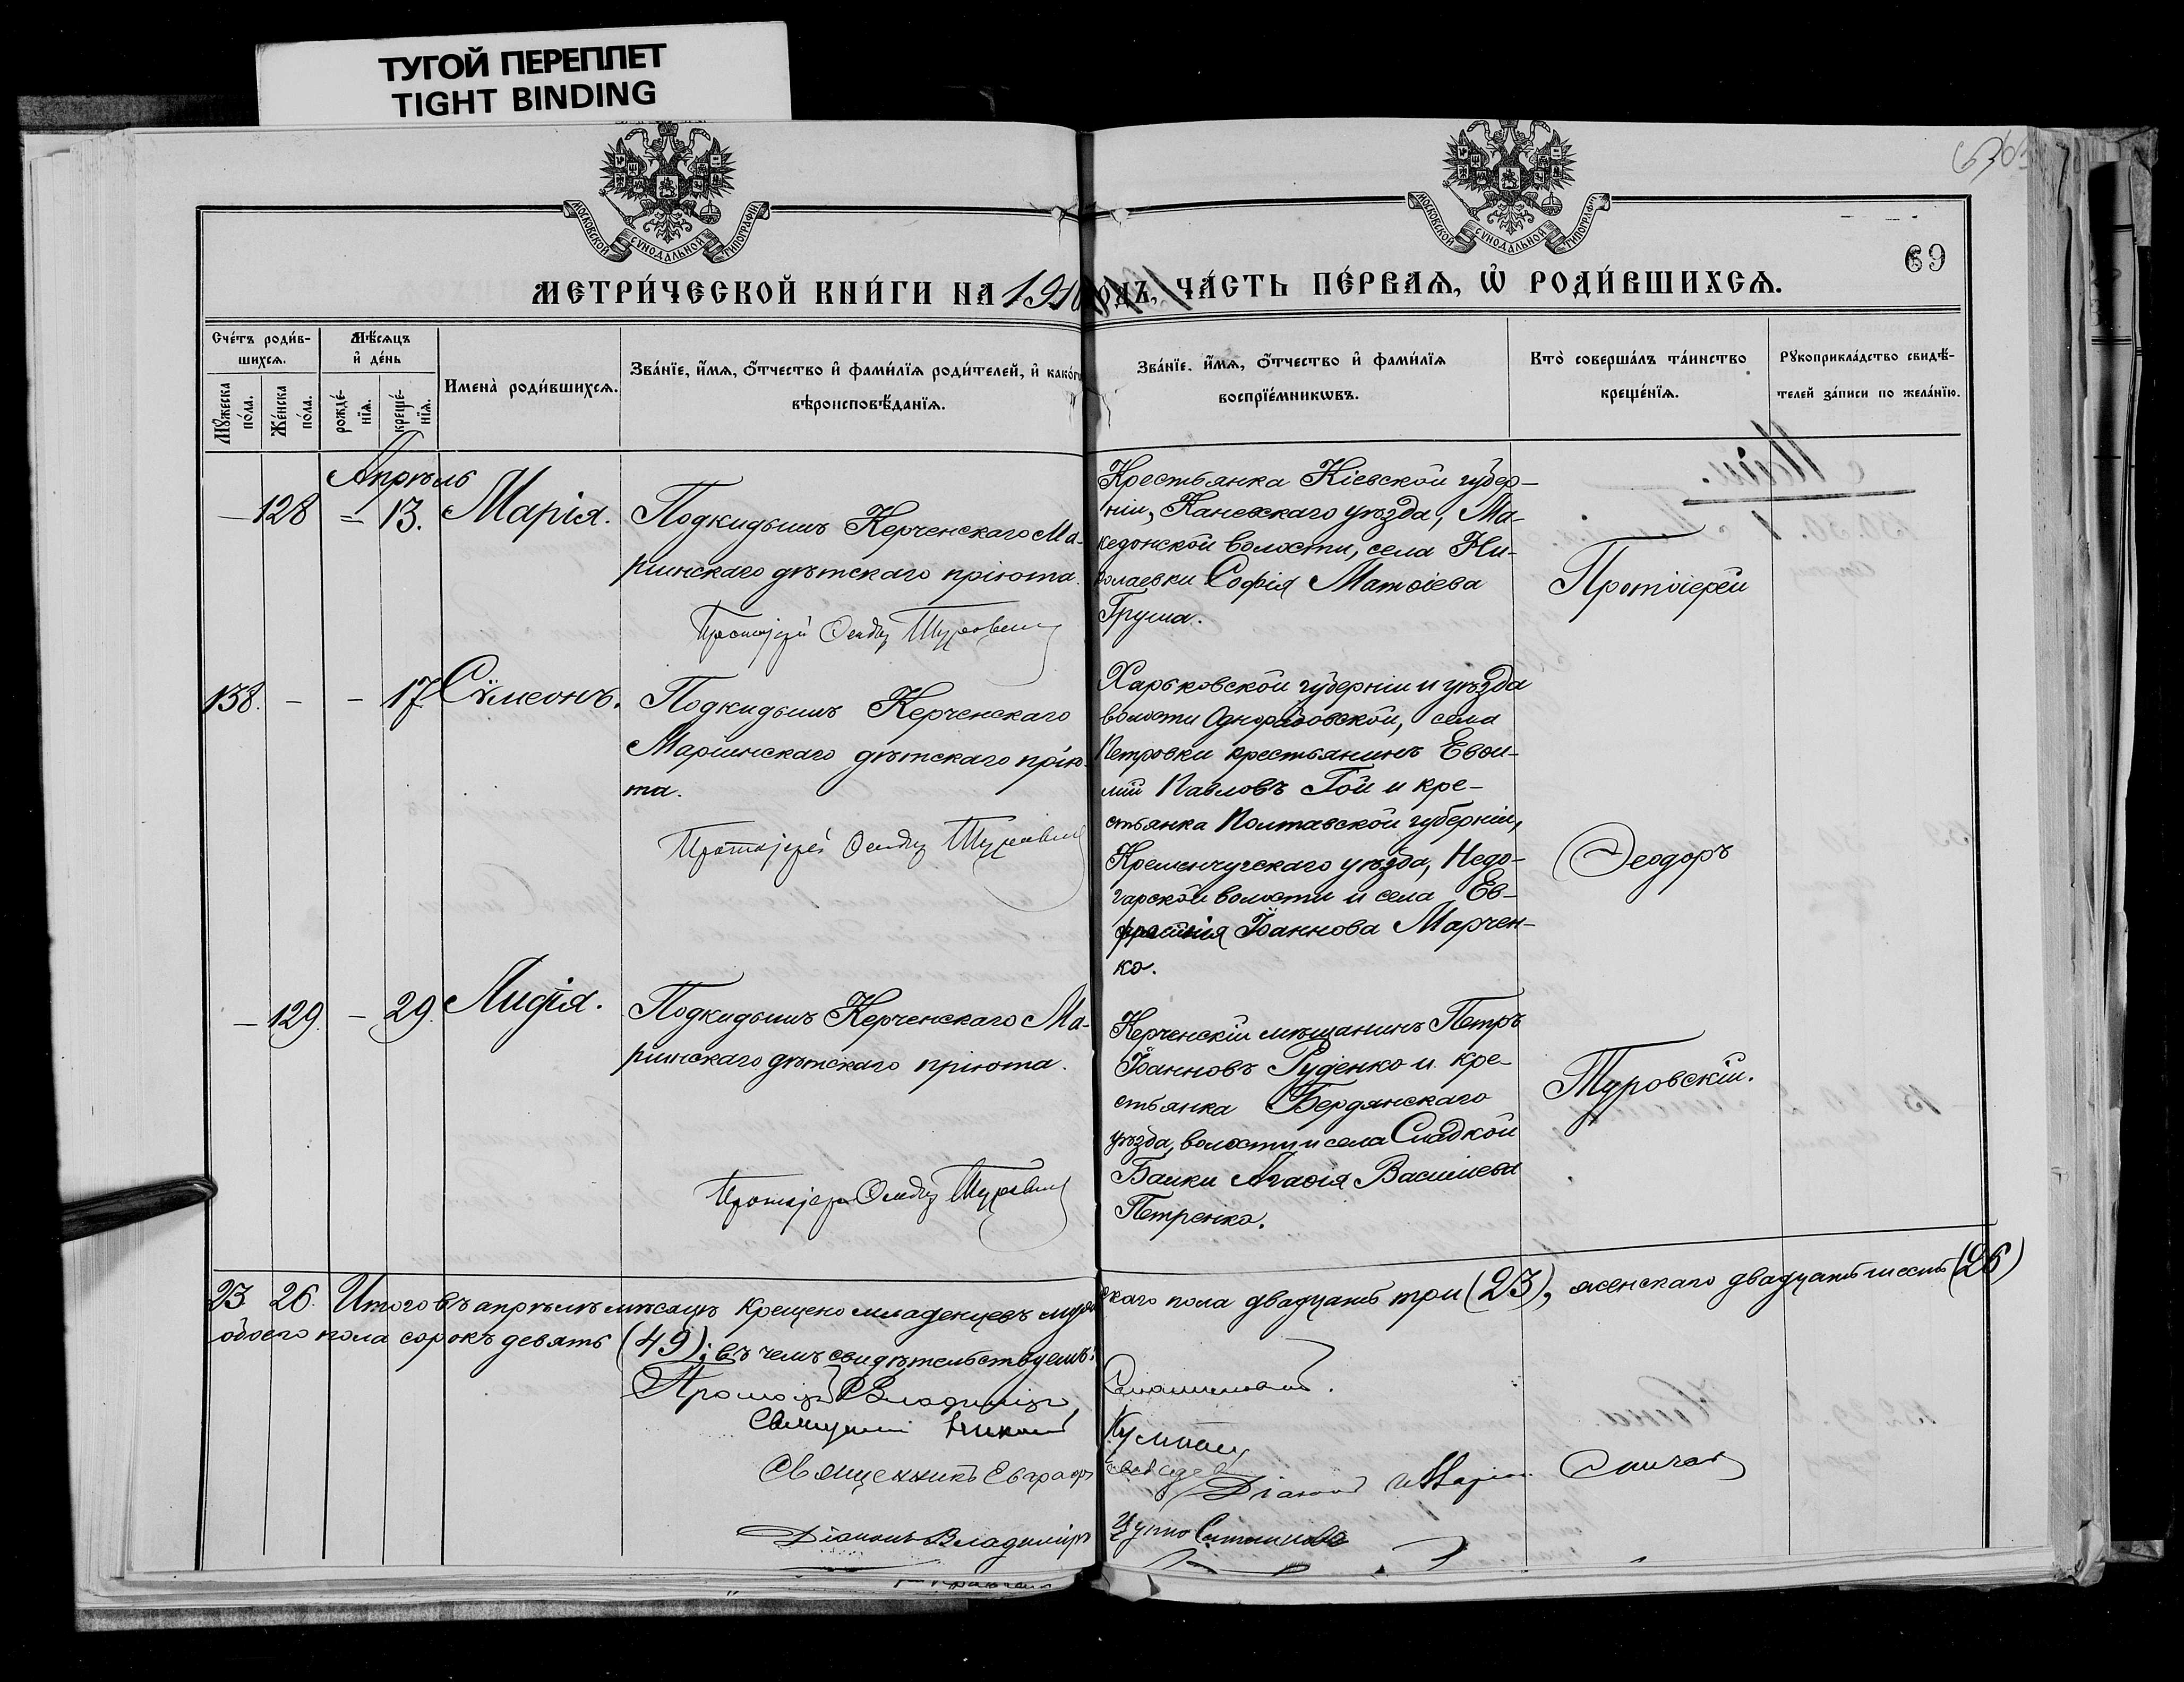 ТУГОЙ ПЕРЕПЛЕТ
TIGHT BINDING
МОСКОВСКОЙ СѴНОДАЛЬНОЙ ТИПОГРАФІИ
МОСКОВСКОЙ СѴНОДАЛЬНОЙ ТИПОГРАФІИ
69
МЕТРИ́ЧЕСКОЙ КНИ́ГИ НА 1910 годъ, ЧА́СТЬ ПЕ́РВАѦ, Ѡ҆ РОДИ́ВШИХСѦ.
Сче́тъ роди́в-
шихсѧ.
Мѣ́сѧцъ
и҆ де́нь
Мꙋ́жеска
по́ла.
Же́нска
по́ла.
рожде́-
нїѧ.
креще́-
нїѧ.
Имена̀ роди́вшихсѧ.
Зва́нїе, и҆́мѧ, ѻ҆́тчество и҆ фами́лїѧ роди́телей, и҆ како́гѡ
вѣроисповѣ́данїѧ.
Зва́нїе, и҆́мѧ, ѻ҆́тчество и҆ фами́лїѧ
воспрїе́мникѡвъ.
Кто̀ соверша́лъ та́инство
креще́нїѧ.
Рꙋкоприкла́дство свидѣ́-
телей за́писи по жела́нїю.
Апрѣль
— 128 = 13. Марія.
Подкидышъ Керченскаго Ма-
ріинскаго дѣтскаго пріюта.
Протоіерей Ѳеодоръ Туровскій
Крестьянка Кіевской губер-
ніи, Каневскаго уѣзда, Ма-
кедонской волости, села Ни-
колаевки Софія Матѳіева
Груша.
Протоіерей
138. — — 17 Сѵмеонъ.
Подкидышъ Керченскаго
Маріинскаго дѣтскаго прію-
та.
Протоіерей Ѳеодоръ Туровскій
Харьковской губерніи и уѣзда
волости Одноробовской, села
Петровки крестьянинъ Евѳи-
мій Павловъ Гой и кре-
стьянка Полтавской губерніи,
Кременчугскаго уѣзда, Недо-
гарской волости и села Ев-
фросинія Іоаннова Марчен-
ко.
Ѳеодоръ
— 129. — 29. Лидія.
Подкидышъ Керченскаго Ма-
ріинскаго дѣтскаго пріюта.
Протоіерей Ѳеодоръ Туровскій
Керченскій мѣщанинъ Петръ
Іоанновъ Руденко и кре-
стьянка Бердянскаго
уѣзда, волости и села Сладкой
Балки Агаѳія Василіева
Петренко.
Туровскій.
23. 26. Итого въ апрѣлѣ мѣсяцѣ крещено младенцевъ мужескаго пола двадцать три (23), женскаго двадцать шесть (26)
обоего пола сорокъ девять (49); въ чемъ свидѣтельствуемъ:
Протоіерей Владиміръ
Священникъ
Священникъ Евграфъ
Діаконъ
Діаконъ Владиміръ